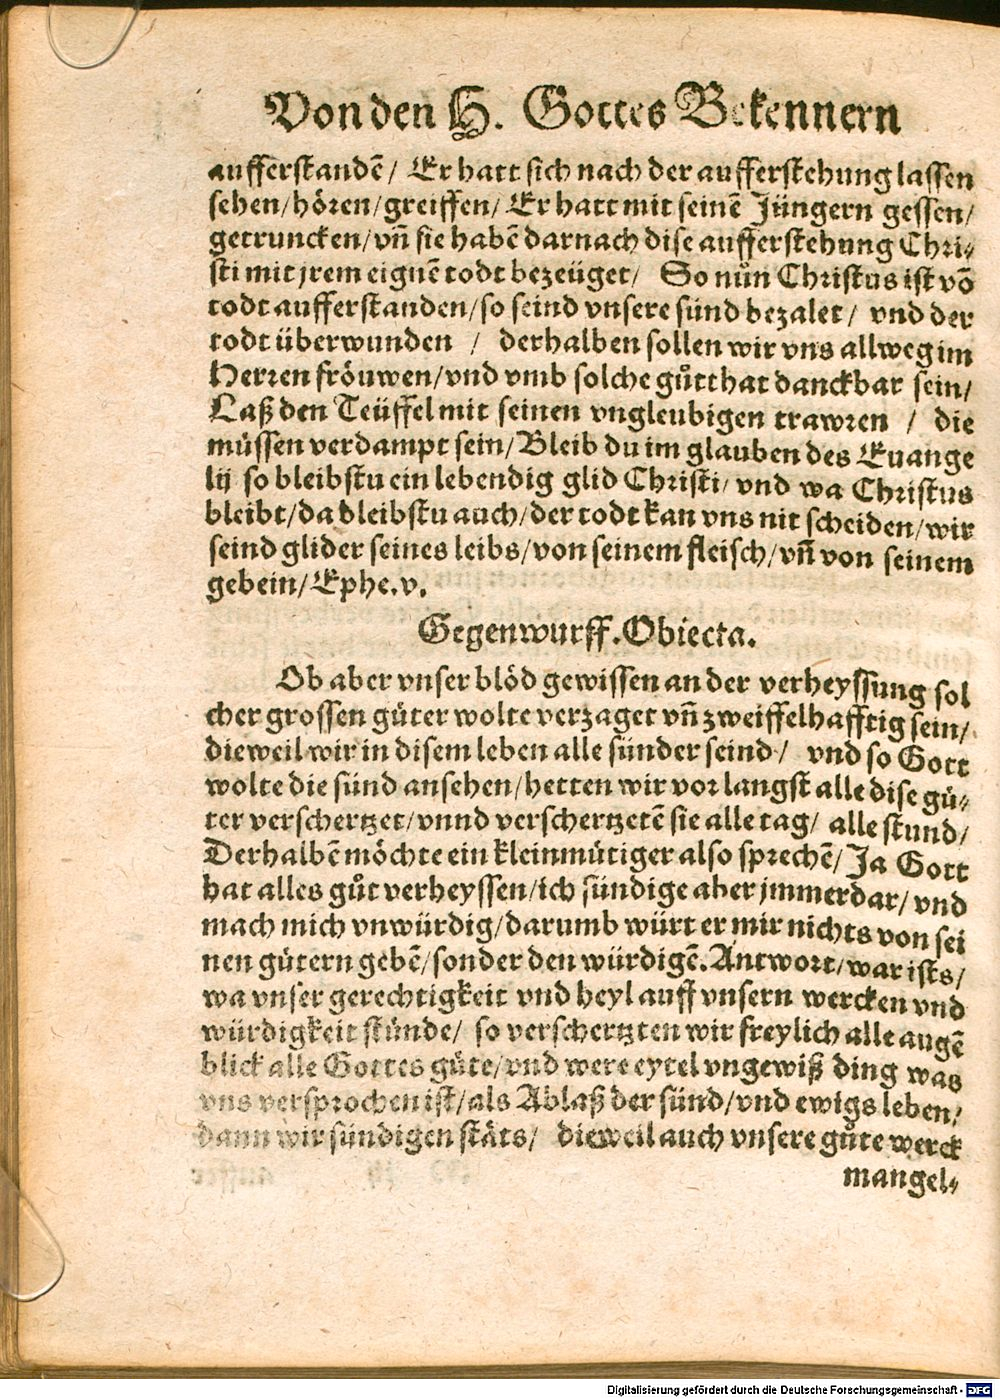 Von den H. Gottes Bekennern
aufferstandẽ/ Er hatt sich nach der aufferstehung lassen
sehen/hören/greiffen/ Er hatt mit seinẽ Jüngern gessen/
getruncken/vñ sie habẽ darnach dise aufferstehung Chri⸗
sti mit jrem eignẽ todt bezeüget/ So nůn Christus ist võ
todt aufferstanden/so seind vnsere sünd bezalet/ vnd der
todt überwunden / derhalben sollen wir vns allweg im
Herren fröuwen/vnd vmb solche gůtthat danckbar sein/
Laß den Teüffel mit seinen vngleubigen trawren / die
müssen verdampt sein/Bleib du im glauben des Euange
lij so bleibstu ein lebendig glid Christi/ vnd wa Christus
bleibt/da bleibstu auch/der todt kan vns nit scheiden/wir
seind glider seines leibs/von seinem fleisch/vñ von seinem
gebein/Ephe.v.
Gegenwurff.Obiecta.
Ob aber vnser blöd gewissen an der verheyssung sol
cher grossen güter wolte verzaget vñ zweiffelhafftig sein/
dieweil wir in disem leben alle sünder seind/ vnd so Gott
wolte die sünd ansehen/hetten wir vor langst alle dise gü⸗
ter verschertzet/vnnd verschertzetẽ sie alle tag/ alle stund/
Derhalbẽ möchte ein kleinmütiger also sprechẽ/Ja Gott
hat alles gůt verheyssen/ich sündige aber jmmerdar/vnd
mach mich vnwürdig/darumb würt er mir nichts von sei
nen gütern gebẽ/sonder den würdigẽ.Antwort/war ists/
wa vnser gerechtigkeit vnd heyl auff vnsern wercken vnd
würdigkeit stünde/ so verschertzten wir freylich alle augẽ
blick alle Gottes güte/vnd were eytel vngewiß ding was
vns versprochen ist/als Ablaß der sünd/vnd ewigs leben/
dann wir sündigen stäts/ dieweil auch vnsere gůte werck
mangel⸗
Digitalisierung gefördert durch die Deutsche Forschungsgemeinschaft - DFG